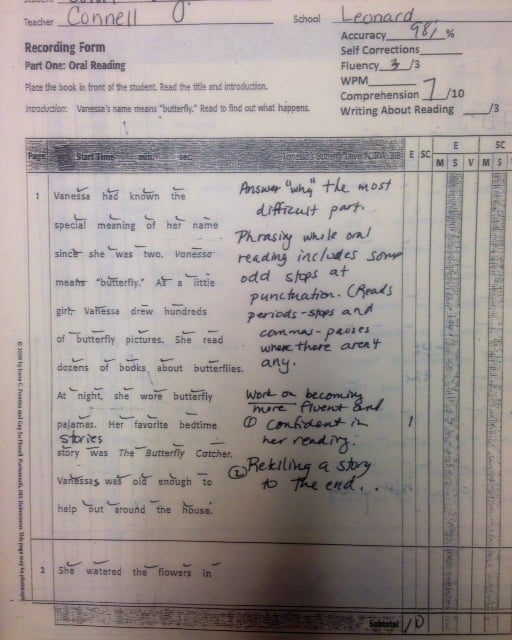 Teacher Connell School Leonard
Accuracy 98% %
Self Corrections
Fluency 3 /3
WPM
Comprehension 7 /10
Writing About Reading /3
Recording Form
Part One: Oral Reading
Place the book in front of the student. Read the title and introduction.
Introduction: Vanessa's name means "butterfly." Read to find out what happens.
Page Start Time min. sec. E SC E SC
M S V M S
1 Vanessa had known the
special meaning of her name
since she was two. Vanessa
means "butterfly." As a little
girl, Vanessa drew hundreds
of butterfly pictures. She read
dozens of books about butterflies.
At night, she wore butterfly
pajamas. Her favorite bedtime
stories
story was The Butterfly Catcher.
Vanessa was old enough to
help out around the house.
Answer "why" the most
difficult part.
Phrasing while oral
reading includes some
odd stops at
punctuation. (Reads
periods-stops and
commas-pauses
where there aren't
any.
Work on becoming
more fluent and
① confident in
her reading.
② Retelling a story
to the end.
1
2 She watered the flowers in
Subtotal 1 0